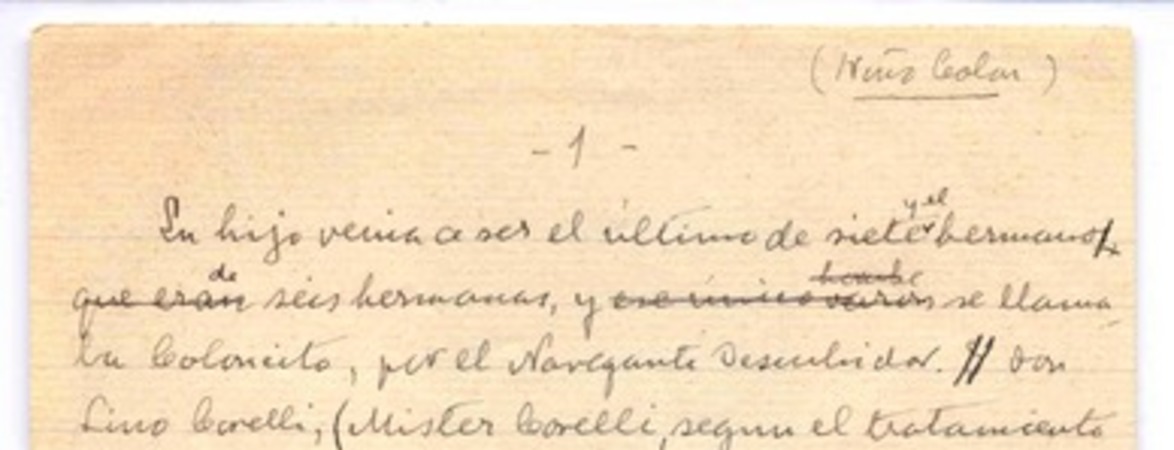 (Niño Colon)
- 1 -
Su hijo venia a ser el último de siete y el hermano
que eran de seis hermanas, y ese único varon hombre se llama
ba Coloncito, por el Navegante Descubridor. // Don
Lino Corelli, (Mister Corelli, segun el tratamiento